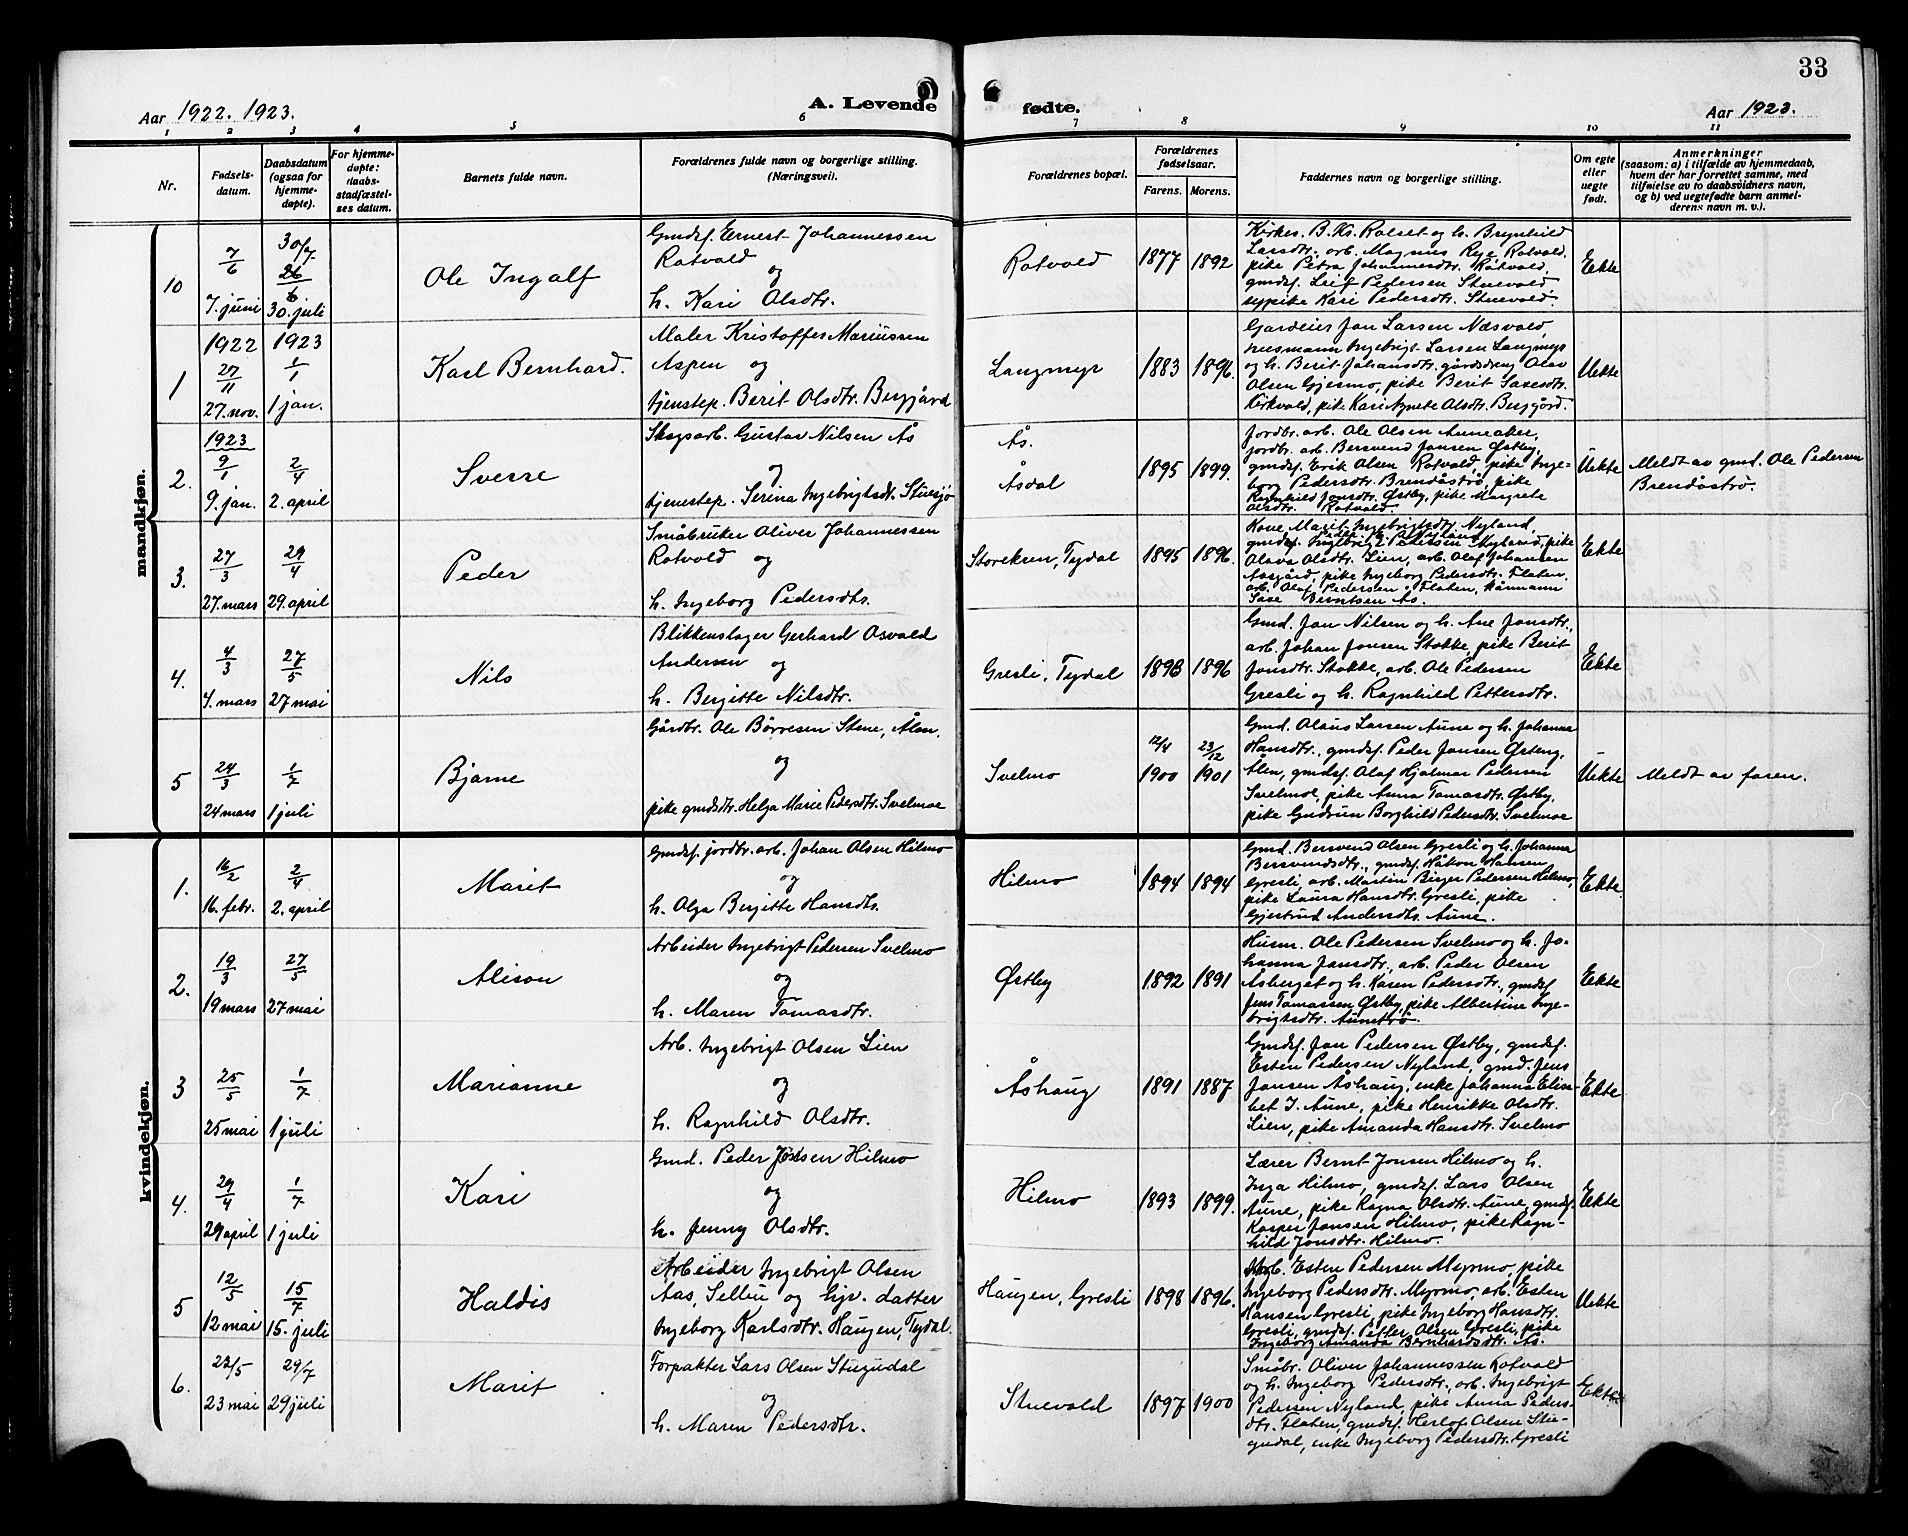 33
Aar 1922. 1923.
A. Levende fødte.
Aar 1923.
1 2 3 4 5 6 7 8 9 10 11
Nr.
Fødsels-
datum.
Daabsdatum
(ogsaa for
hjemme-
døpte).
For hjemme-
døpte:
daabs-
stadfæstel-
ses datum.
Barnets fulde navn.
Forældrenes fulde navn og borgerlige stilling.
(Næringsvei).
Forældrenes bopæl.
Forældrenes
fødselsaar.
Farens. Morens.
Faddernes navn og borgerlige stilling.
Om egte
eller
uegte
født.
Anmerkninger
(saasom: a) i tilfælde av hjemmedaab,
hvem der har forrettet samme, med
tilføielse av to daabsvidners navn,
og b) ved uegtefødte barn anmel-
derens navn m. v.).
mandkjøn.
10
7/6
7. juni
30/7
26/6
30. juli
Ole Ingalf
Gmdsf. Ernest Johannessen
Rotvold
og
h. Kari Olsdtr.
Rotvold
1877 1892
Kirkes. B. Kr. Rolset og h. Brynhild
Larsdtr. arb. Magnus Rye Rotvold,
pike Petra Johannesdtr. Rotvold,
gmdsf. Leif Pedersen Stuevold
sypike Kari Pedersdtr. Stuevold
Ekte
1
1922
27/11
27. nov.
1923
1/1
1 jan.
Karl Bernhard.
Maler Kristoffer Mariussen
Aspen og
tjenstep. Berit Olsdtr. Berggård
Langmyr
1883 1896.
Gardeier Jon Larsen Næsvold,
husmann Ingebrigt Larsen Langmyr
og h. Berit Johansdtr. gårdsdreng Olav
Olsen Gjesmo, pike Berit Larsdtr.
Kirkvold, pike Kari Agnete Olsdtr. Berggård.
Uekte
2.
1923
9/1
9. jan.
2/4
2. april
Sverre
Skogsarb. Gustav Nilsen Ås
og
tjenestep. Serina Ingebrigtsdt. Stuesjø
Ås.
Åsdal
1895 1899.
Jordbr. arb. Ole Olsen Auneaker,
jordbr. arb. Bersvend Jonsen Østby,
gmdsf. Erik Olsen Rotvold, pike Inge-
borg Pedersdtr. Brendåstrø, pike
Ragnhild Jonsdtr. Østby, pike Margrete
Olsdtr. Rotvold.
Uekte
Meldt av gmd. Ole Pedersen
Brendåstrø.
3.
27/3
27. mars
29/4
29. april
Peder
Småbruker Oliver Johannessen
Rotvold og
h. Ingeborg Pedersdtr.
Storekvn, Tydal
1895 1896.
Kone Marit Ingebrigtsdtr. Nyland
gmdsf. Ingebrigt Petersen Nyland, pike
Olava Olsdtr. Lien, arb. Olaf Johansen
Aasgård, pike Ingeborg Pedersdtr. Flaten,
arb. Olaf Pedersen Flaten, kårmann
Berntsen Ås.
Ekte
4.
4/3
4. mars
27/5
27 mai
Nils
Blikkenslager Gerhard Osvald
Andersen og
h. Bergitte Nilsdtr.
Gresli, Tydal
1893 1896
Gmd. Jon Nilsen og h. Ane Jonsdtr.,
arb. Johan Jonsen Stokke, pike Berit
Jonsdtr. Stokke, arb. Ole Pedersen
Gresli og h. Ragnhild Pettersdtr.
Ekte
5
24/3
24 mars
1/7
1 juli
Bjarne
Gårdbr. Ole Børresen Stene, Ålen.
og
pike gmdsdtr. Helga Marie Pedersdtr. Svelmoe
Svelmo
12/4 1900
23/12 1901
Gmd. Olaus Larsen Aune og h. Johanna
Hansdtr., gmdsf. Peder Jonsen Østeng,
Ålen, gmdsf. Olaf Hjalmar Pedersen
Svelmoe, pike Anna Tomasdtr. Østby,
pike Gudrun Borghild Pedersdtr. Svelmoe
Uekte
Meldt av faren.
kvindekjøn.
1.
16/2
16. febr.
2/4
2. april
Marit
Gmdsf. jordbr. arb. Johan Olsen Hilmo
og
h. Olga Bergitte Hansdtr.
Hilmo
1894 1894
Gmd. Bersvend Olsen Gresli og h. Johanna
Bersvendsdtr., gmdsf. Håkon Hansen
Gresli, arb. Martin Birger Pedersen Hilmo,
pike Laura Hansdtr. Gresli, pike
Gjertrud Andersdtr. Aune.
Ekte
2.
19/3
19 mars
27/5
27 mai
Alison
Arbeider Ingebrigt Pedersen Svelmo
og
h. Maren Tomasdtr.
Østby
1892 1891
Husm. Ole Pedersen Svelmo og h. Jo-
hanna Jonsdtr., arb. Peder Olsen
Åsberget og h. Karen Pedersdtr., gmdsf.
Jens Tomassen Østby, pike Albertine Inge-
brigtsdtr. Aunetrø
Ekte
3
25/5
25 mai
1/7
1 juli
Marianne
Arb. Ingebrigt Olsen Lien
og
h. Ragnhild Olsdtr.
Åshaug
1891 1887
Gmdsf. Jon Pedersen Østby, gmdsf.
Esten Pedersen Nyland, gmd. Jens
Jonsen Åshaug, enke Johanna Elisa-
bet J. Aune, pike Henrikke Olsdtr.
Lien, pike Amanda Hansdtr. Svelmo
Ekte
4.
29/4
29 april
1/7
1 juli
Kari
Gmd. Peder Jonsen Hilmo
og
h. Jenny Olsdtr.
Hilmo
1893 1899.
Lærer Bernt Jonsen Hilmo og h.
Inga Hilmo, gmdsf. Lars Olsen
Aune, pike Ragna Olsdtr. Aune, gmdsf.
Kasper Jonsen Hilmo, pike Ragn-
hild Jonsdtr. Hilmo.
Ekte
5
12/5
12 mai
15/7
15. juli
Haldis
Arbeider Ingebrigt Olsen
Aas, Selbu og hjv. datter
Ingeborg Karlsdtr. Haugen, Tydal.
Haugen, Gresli
1898 1896.
Arb. Esten Pedersen Myrmo, pike
Ingeborg Pedersdtr. Myrmo, arb. Esten
Hansen Gresli, pike Ingeborg Hansdtr.
Gresli, gmdsf. Petter Olsen Gresli, pike
Ingeborg Amanda Bernhardsdtr. Ås.
Uekte
6.
22/5
23 mai
29/7
29 juli
Marit
Forpakter Lars Olsen Stugudal
og
h. Maren Pedersdtr.
Stuevold
1897 1900
Småbr. Oliver Johannessen Rotvold
og h. Ingeborg Pedersdtr., arb. Ingebrigt
Pedersen Nyland, pike Anna Peders-
dtr. Flaten, gmdsf. Herlof Olsen Stu-
gudal, enke Ingeborg Pedersdtr. Gresli
Ekte